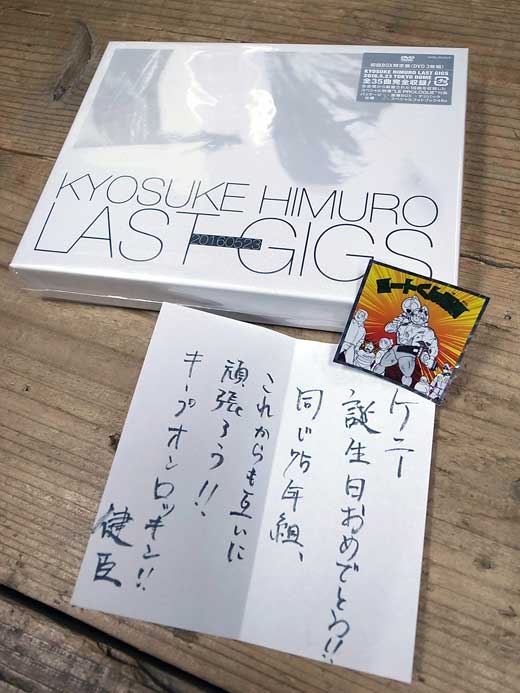 DVD
初回BOX限定盤(DVD 3枚組)
KYOSUKE HIMURO LAST GIGS
2016.5.23 TOKYO DOME
全35曲完全収録!
KYOSUKE HIMURO
LAST GIGS
20160523
ケニー
誕生日おめでとう!!
同じ75年組、
これからも互いに
頑張ろう!!
キープオンロッキン!!
健臣